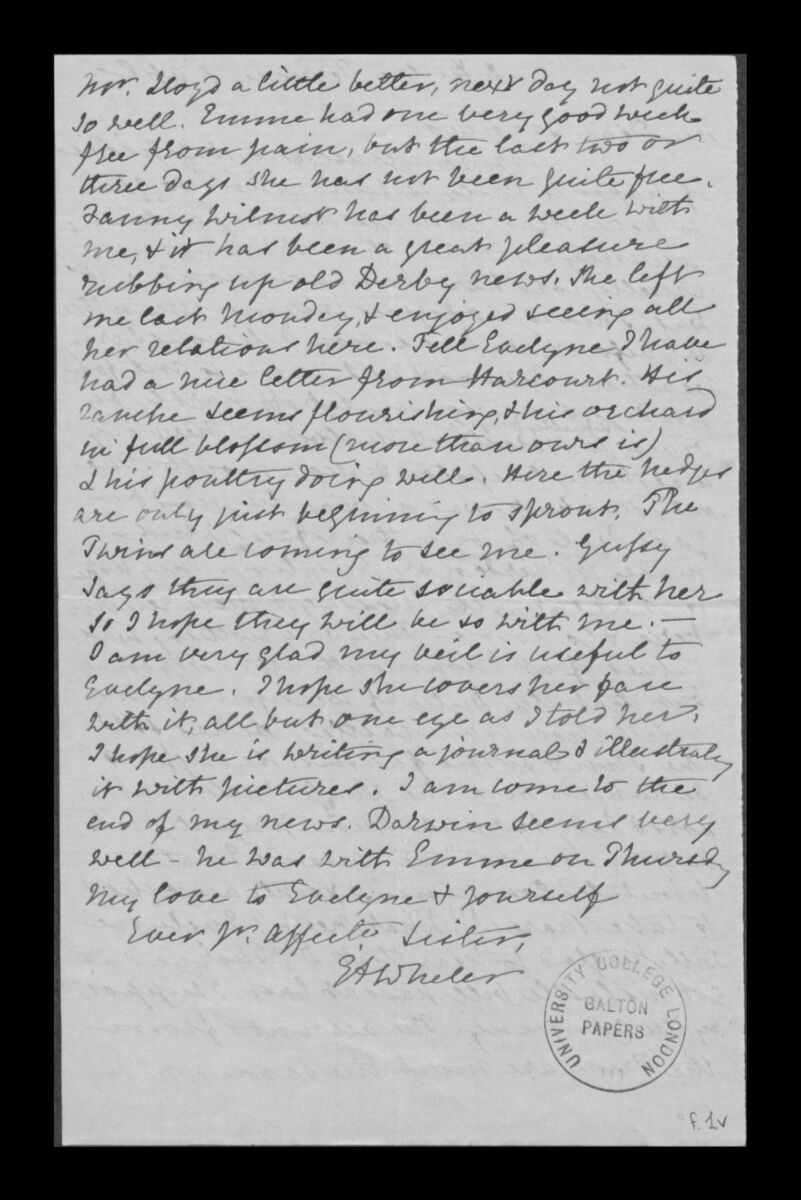 Mr. Lloyd a little better, next day not quite
so well. Emme had one very good week
free from pain, but the last two or
three days she has not been quite free.
Fanny Wilmot has been a week with
me, & it has been a great pleasure
rubbing up old Derby news. She left
me last Monday, & enjoyed seeing all
her relations here. Tell Evelyne I have
had a nice letter from Harcourt. His
ranche seems flourishing, & his orchard
in full blossom (more than ours is)
& his poultry doing well. Here the hedges
are only just beginning to sprout. The
Twins are coming to see me. Gussy
says they are quite sociable with her
so I hope they will be so with me. —
I am very glad my veil is useful to
Evelyne. I hope she covers her face
with it, all but one eye as I told her.
I hope she is writing a journal & illustrating
it with pictures. I am come to the
end of my news. Darwin seems very
well - he was with Emme on Thursday
My love to Evelyne & yourself
Ever yr. Affecte. Sister,
EAWheler
UNIVERSITY COLLEGE LONDON
GALTON
PAPERS
f.1v